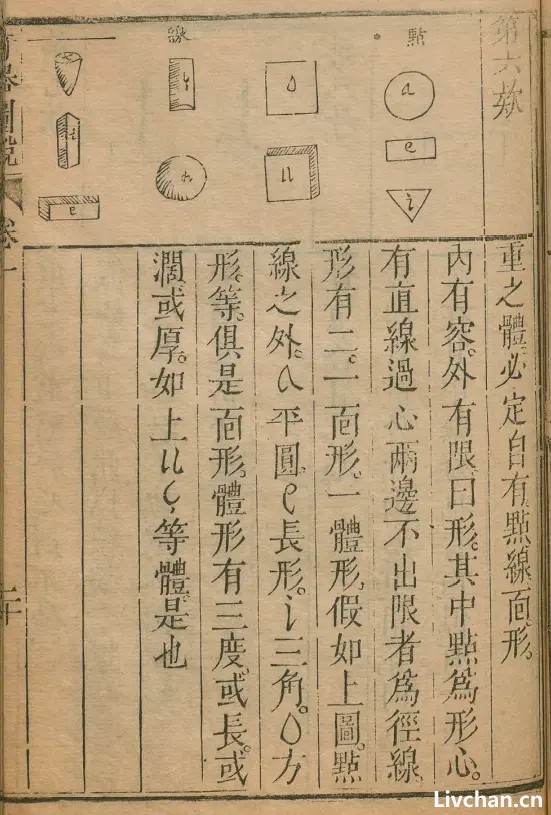 第六款
重之體。必定自有點線面形。
內有容。外有限。曰形。其中點爲形心。
有直線過心兩邊不出限者爲徑線。
形有二。一面形。一體形。假如上圖。點
線之外。a平圓。e長形。i三角。o方
形。等。俱是面形。體形有三度。或長。或
濶。或厚。如上u c,等體。是也
點
a
e
i
o
u
線
e
奇器圖說
卷一
二十
Livchan.cn